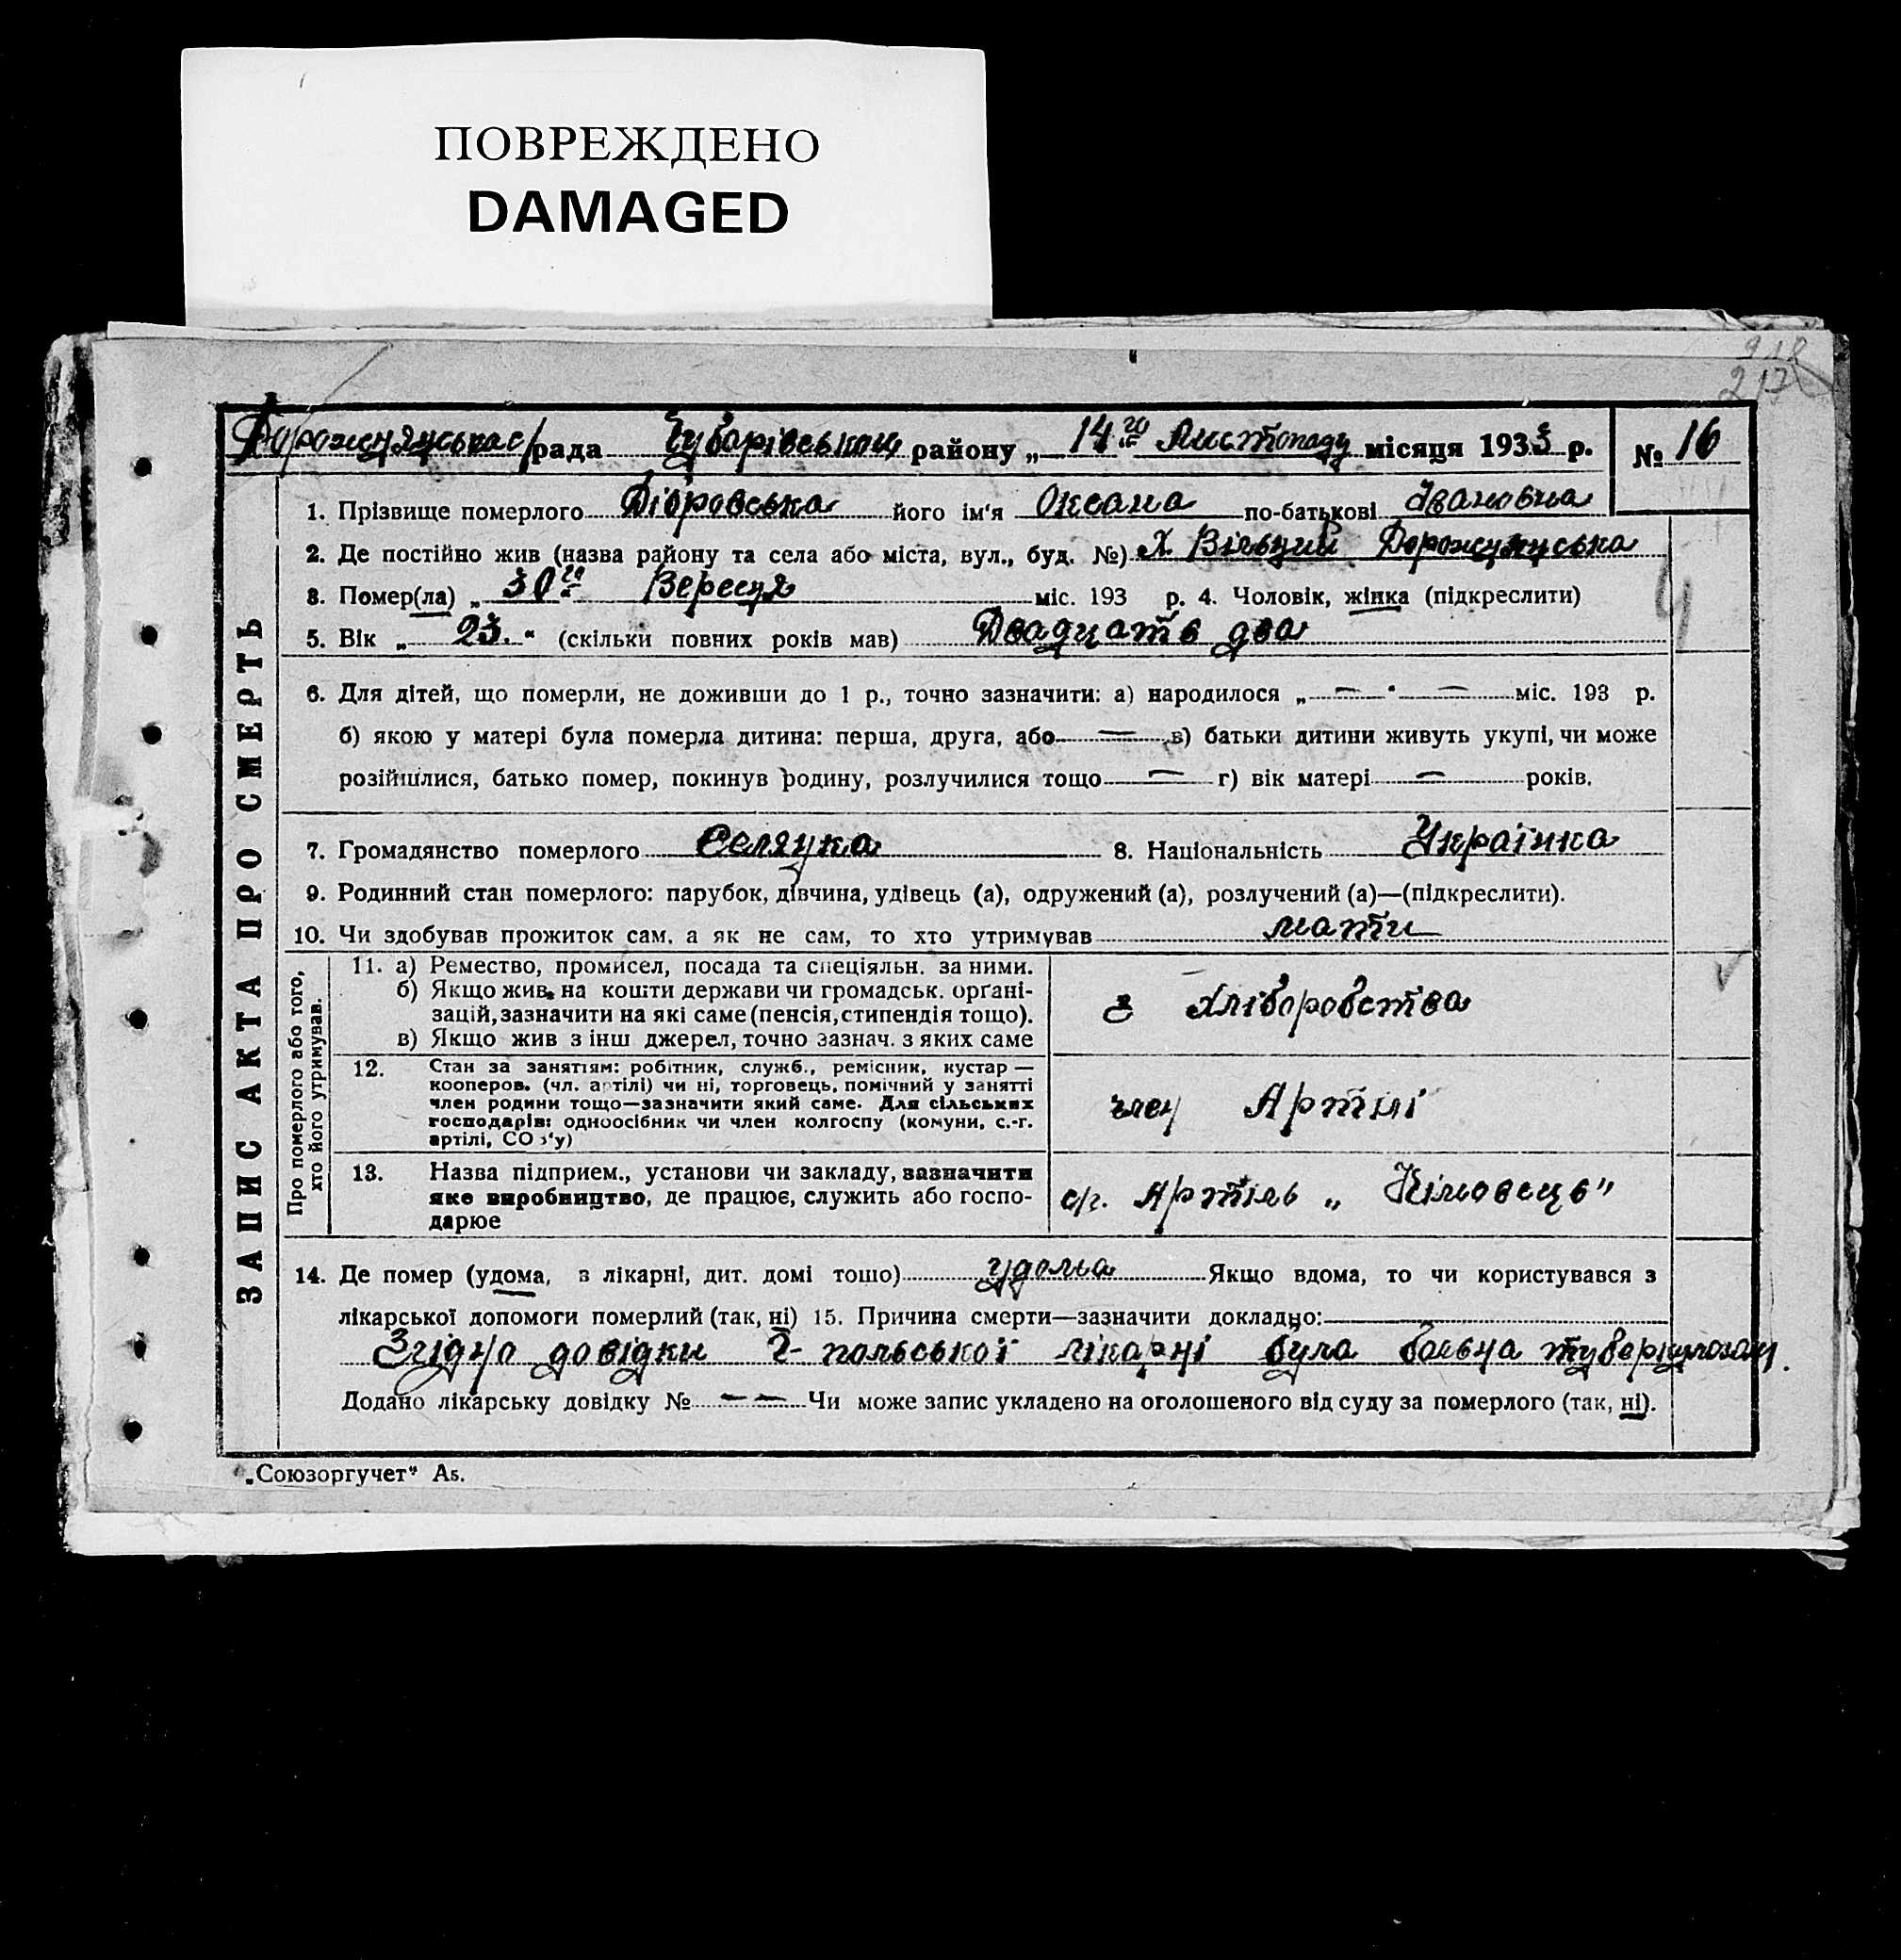 ПОВРЕЖДЕНО
DAMAGED
217
Дорожнянськас/рада Чубарівського району „ 14го Листопаду місяця 1933 р. № 16
1. Прізвище померлого Дібровська його ім'я Оксана по-батькові Івановна
2. Де постійно жив (назва району та села або міста, вул., буд. №) Х. Вільний Дорожнянська
3. Помер(ла) „ 30го Вересня міс. 193 р. 4. Чоловік, жінка (підкреслити)
5. Вік „ 23. “ (скільки повних років мав) Двадцать два
6. Для дітей, що померли, не доживши до 1 р., точно зазначити: а) народилося „ — “ — міс. 193 р.
б) якою у матері була померла дитина: перша, друга, або — в) батьки дитини живуть укупі, чи може
розійшлися, батько помер, покинув родину, розлучилися тощо — г) вік матері — років.
7. Громадянство померлого Селянка 8. Національність Українка
9. Родинний стан померлого: парубок, дівчина, удівець (а), одружений (а), розлучений (а)—(підкреслити).
10. Чи здобував прожиток сам, а як не сам, то хто утримував мати
ЗАПИС АКТА ПРО СМЕРТЬ
Про померлого або того,
хто його утримував.
11. а) Ремество, промисел, посада та спеціяльн. за ними.
б) Якщо жив на кошти держави чи громадськ. орґані-
зацій, зазначити на які саме (пенсія, стипендія тощо).
в) Якщо жив з інш джерел, точно зазнач. з яких саме
з Хліборобства
12. Стан за заняттям: робітник, служб., ремісник, кустар —
кооперов. (чл. артілі) чи ні, торговець, помічний у занятті
член родини тощо—зазначити який саме. Для сільських
господарів: одноосібник чи член колгоспу (комуни, с.-г.
артілі, СО з'у)
член Артілі
13. Назва підприєм., установи чи закладу, зазначити
яке виробництво, де працює, служить або госпо-
дарює
с/г. Артіль „
14. Де помер (удома, в лікарні, дит. домі тощо) удома Якщо вдома, то чи користувався з
лікарської допомоги померлий (так, ні) 15. Причина смерти—зазначити докладно:
Згідно довідки Г-польської лікарні була больна туберкульозом.
Додано лікарську довідку № — — Чи може запис укладено на оголошеного від суду за померлого (так, ні).
„Союзоргучет“ А5.